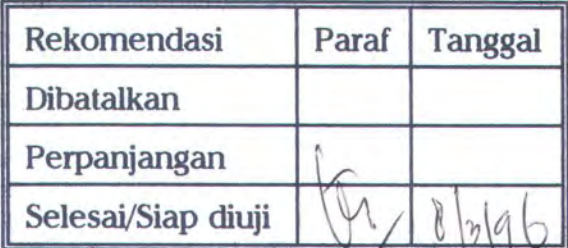 Rekomendasi Paraf Tanggal
Dibatalkan
Perpanjangan
Selesai/Siap diuji 8/3/96